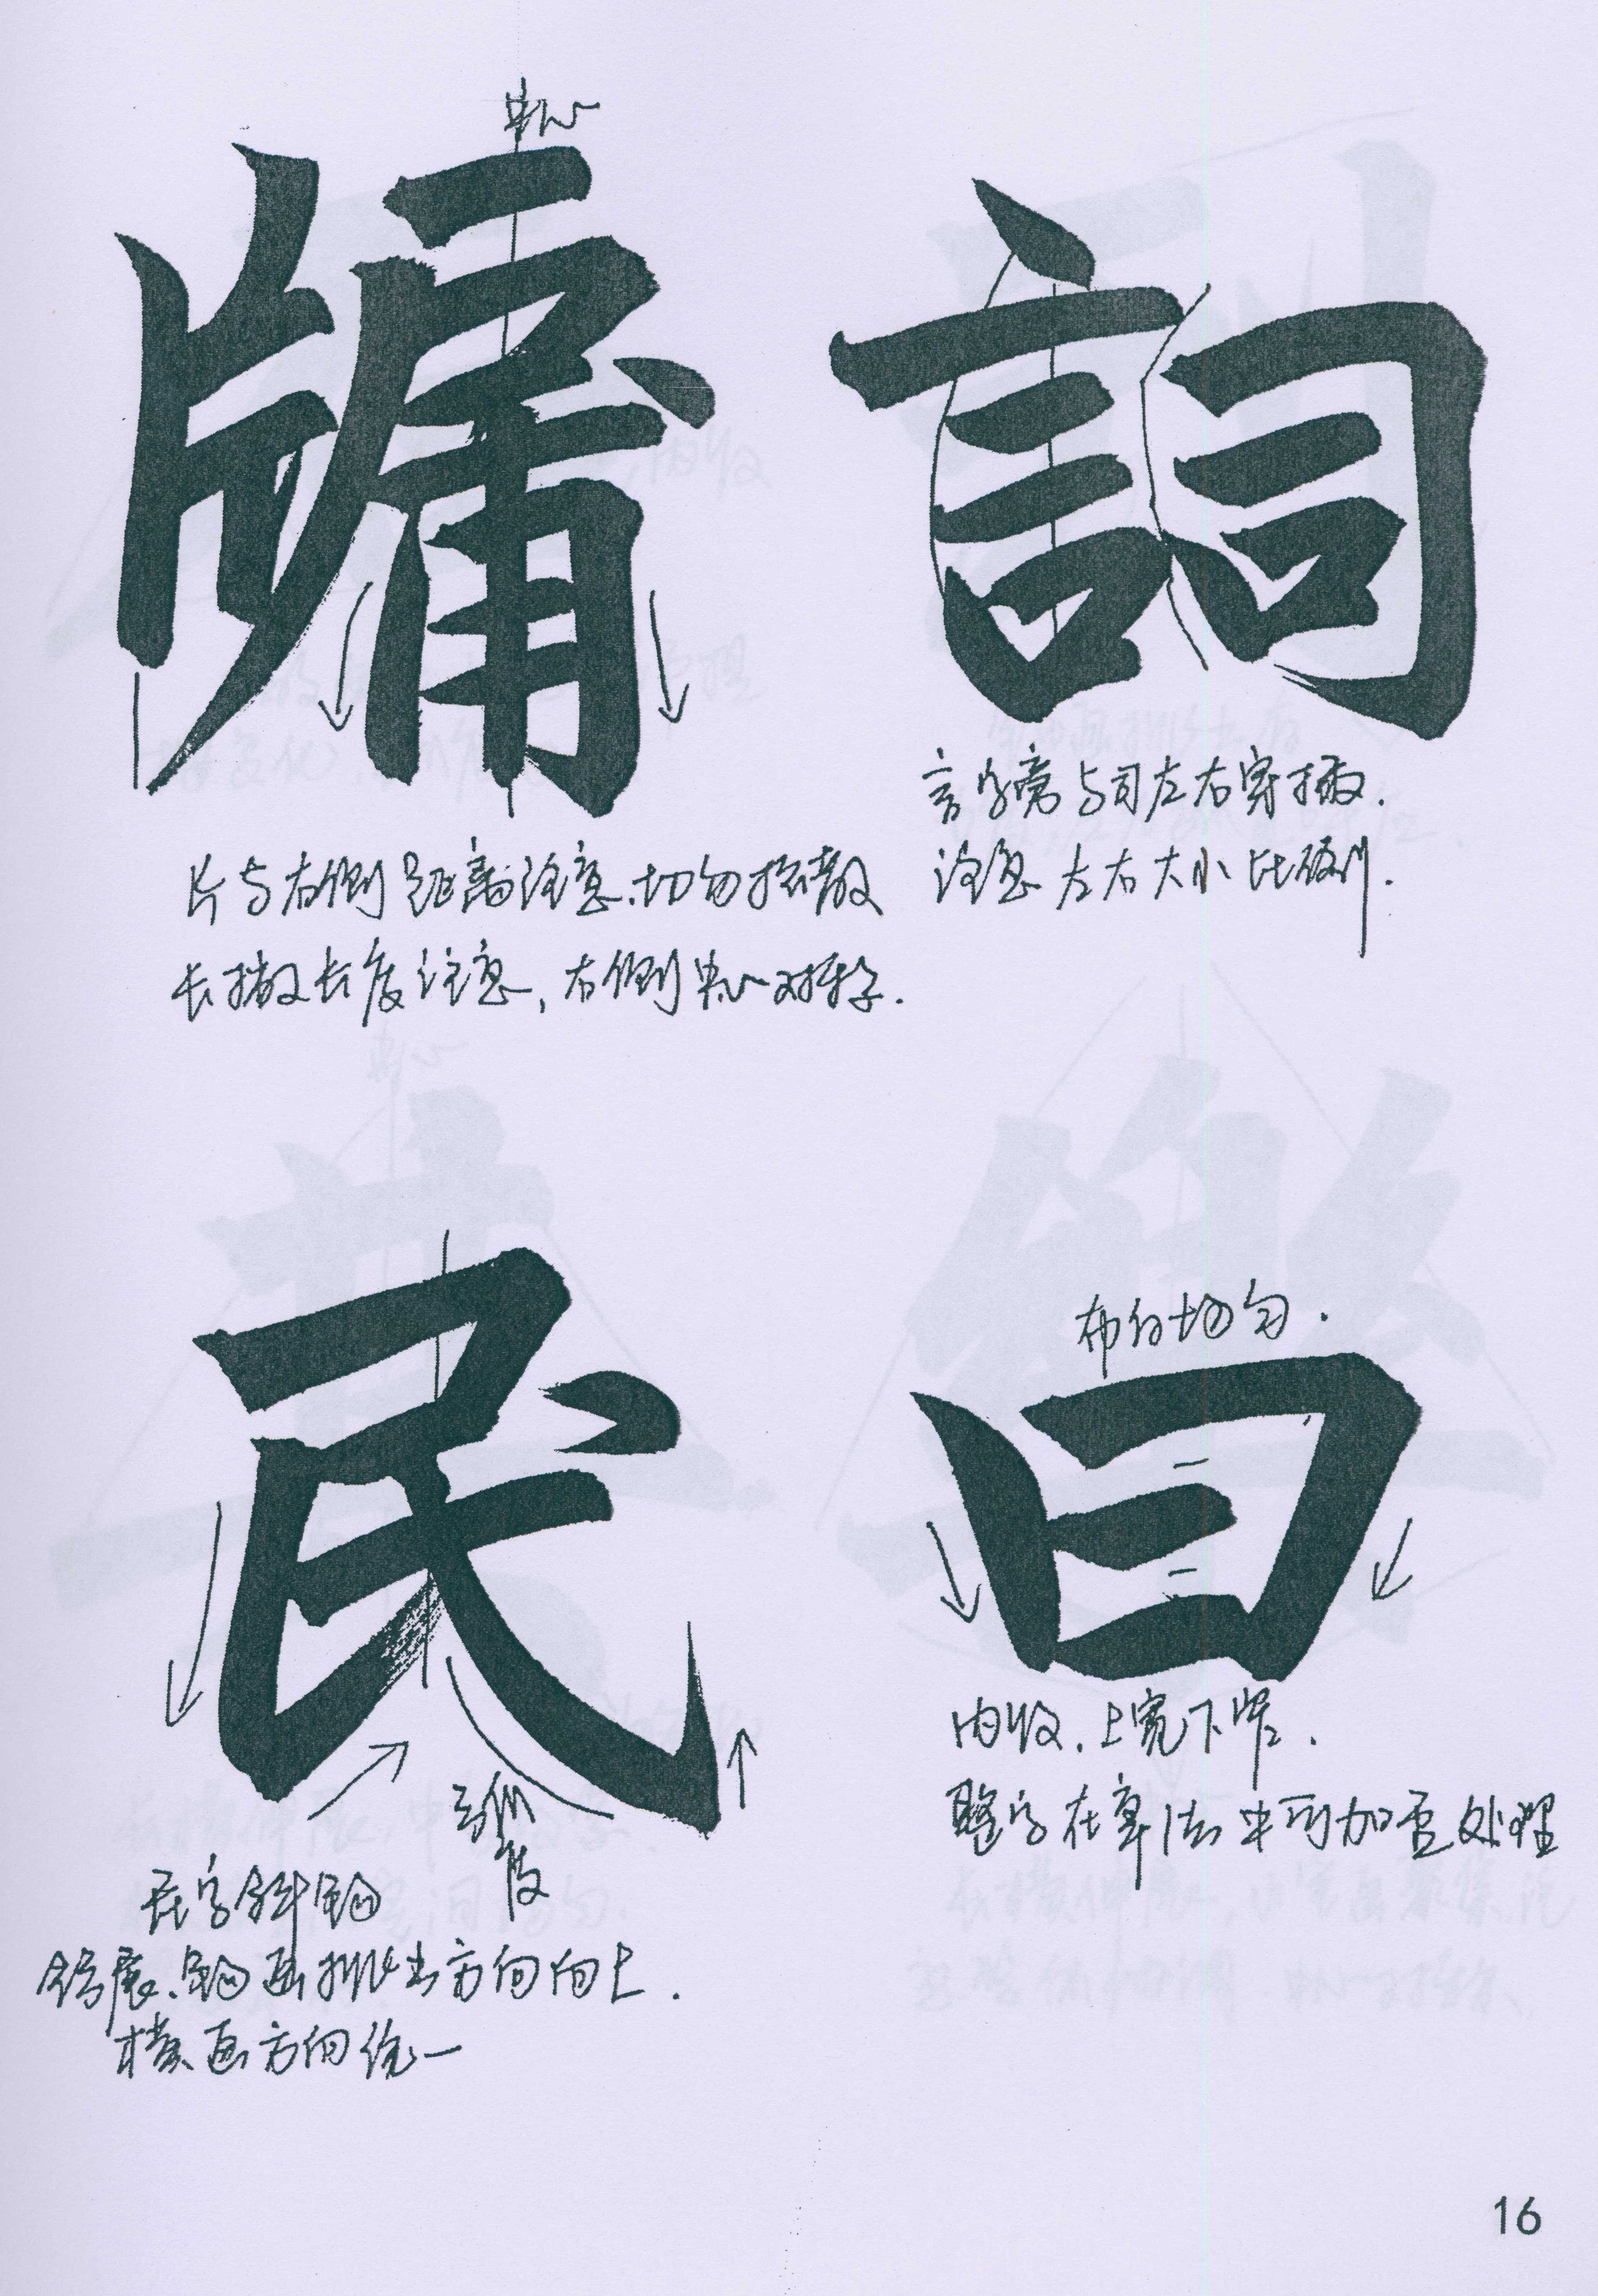 中心
牖
詞
言字旁与司左右穿插.
注意左右大小比例.
片与右侧距离注意.切勿松散
长撇长度注意,右侧中心对称.
民
弧度
民字斜钩
舒展.钩画挑出方向向上.
横画方向统一
布白均匀.
曰
内收.上宽下窄.
整字在章法中可加重处理
16